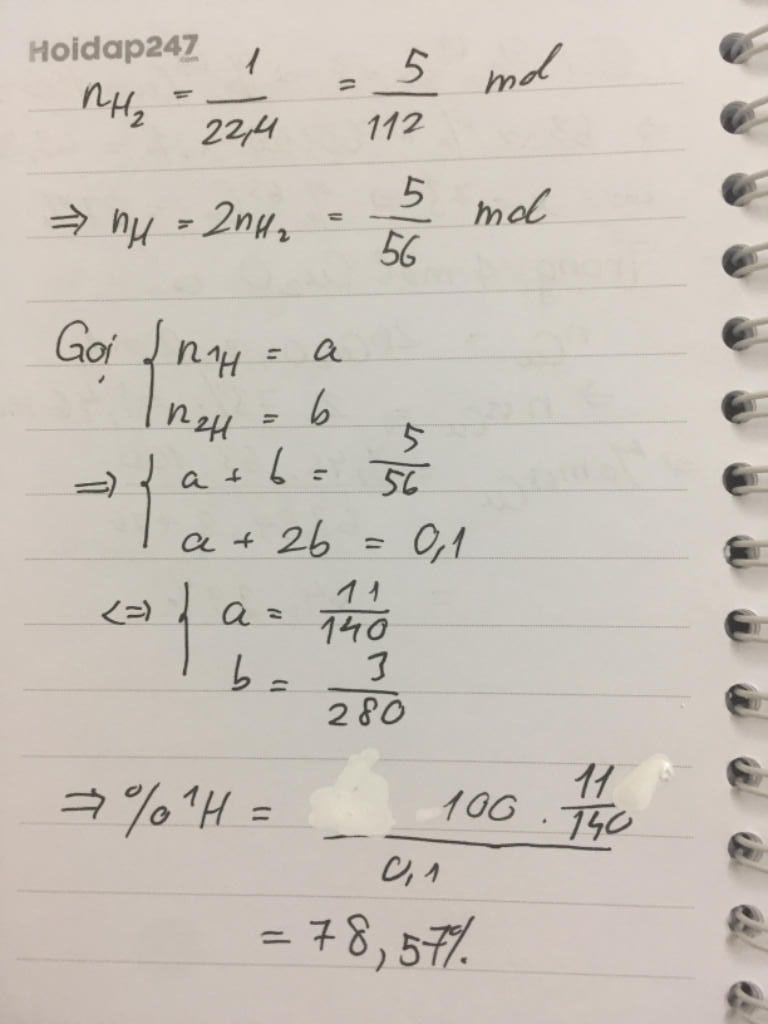 Hoidap247.com
nH₂ = 1/22,4 = 5/112 mol
⇒ nH = 2nH₂ = 5/56 mol
Gọi { n¹H = a
n²H = b
⇒ { a + b = 5/56
a + 2b = 0,1
<=> { a = 11/140
b = 3/280
⇒ %¹H = 100 . 11/140 / 0,1
= 78,57%